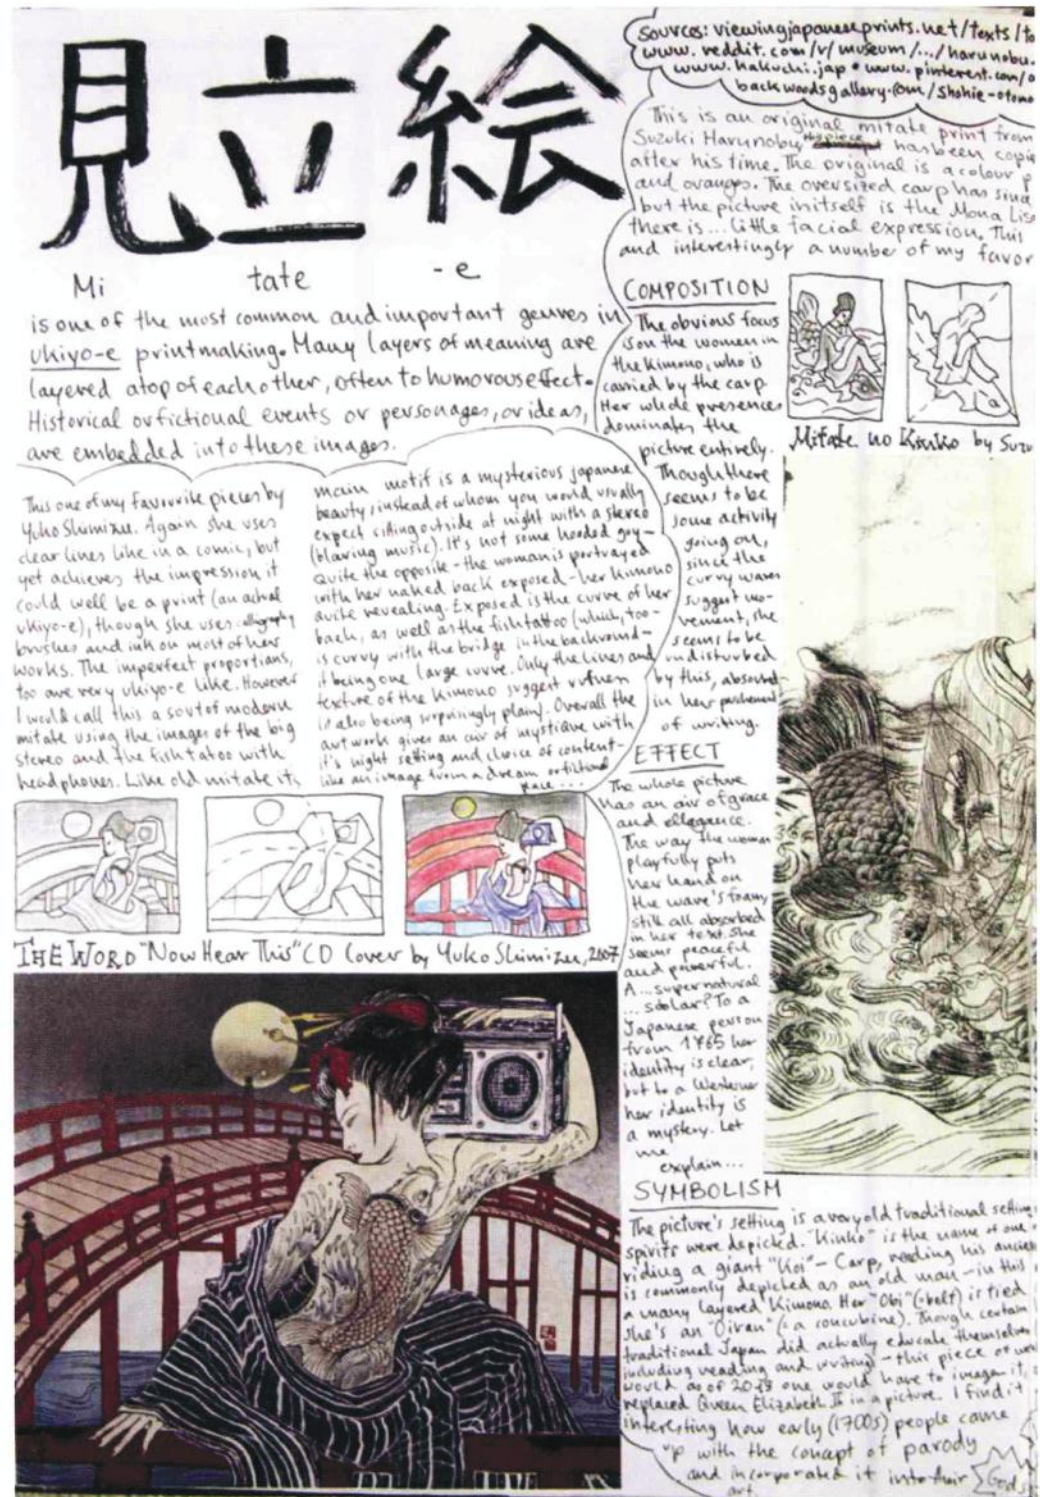 見立絵
Mi tate -e
is one of the most common and important genres in
ukiyo-e printmaking. Many layers of meaning are
layered atop of each other, often to humorous effect.
Historical or fictional events or personages, or ideas,
are embedded into these images.
This one of my favourite pieces by
Yuko Shimizu. Again she uses
clear lines like in a comic, but
yet achieves the impression it
could well be a print (an actual
ukiyo-e), though she uses calligraphy
brushes and ink on most of her
works. The imperfect proportions,
too are very ukiyo-e like. However
I would call this a sort of modern
mitate using the images of the big
stereo and the fish tatoo with
headphones. Like old mitate its
main motif is a mysterious japanese
beauty, instead of whom you would usually
expect sitting outside at night with a stereo
(blaring music). It's not some hooded guy-
Quite the opposite - the woman is portrayed
with her naked back exposed - her kimono
quite revealing. Exposed is the curve of her
back, as well as the fish tattoo (which, too-
is curvy with the bridge in the backround-
it being one large curve. Only the lines and
texture of the kimono suggest
(is also being surprisingly plain). Overall the
artwork gives an air of mystique with
it's night setting and choice of content-
like an image from a dream or fictional
place...
THE WORD "Now Hear This" CD Cover by Yuko Shimizu, 2007
Sources: viewingjapaneseprints.net/texts/to
www.reddit.com/r/museum/.../harunobu.
www.hakuchi.jap • www.pinterest.com/o
backwoodsgallery.com/Shohie-otomo
This is an original mitate print from
Suzuki Harunobu has been copie
after his time. The original is a colour p
and oranges. The oversized carp has sind
but the picture in itself is the Mona Lis
there is... little facial expression. This
and interestingly a number of my favor
COMPOSITION
The obvious focus
is on the women in
the kimono, who is
carried by the carp
Her whole presences
dominates the
picture entirely.
Though there
seems to be
some activity
going on,
since the
curvy waves
suggest mo-
vement, she
seems to be
undisturbed
by this, absorbed
in her parchment
of writing.
Mitate no Kinko by Suzu
EFFECT
The whole picture
has an air of grace
and ellegance.
The way the woman
playfully puts
her hand on
the wave's foam,
still all absorbed
in her text. She
seems peaceful
and powerful.
A... supernatural
... scolar? To a
Japanese person
from 1765 her
identity is clear,
but to a Westerner
her identity is
a mystery. Let
me
explain...
SYMBOLISM
The picture's setting is a very old traditional setting
spirits were depicted. "Kinko" is the name of one
riding a giant "Koi" - Carp, reading his ancien
is commonly depicted as an old man - in this
a many layered Kimono. Her "Obi" (=belt) is tied
she's an "Oiran" (=a concubine). Though certain
traditional Japan did actually educate themselves
including reading and writing - this piece of
would as of 2013 one would have to imagen it,
replaced Queen Elizabeth II in a picture. I find it
interesting how early (1700s) people came
up with the concept of parody
and incorporated it into their
art.
Gods